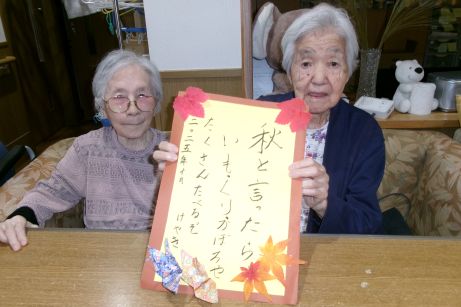 秋と言ったら
いもくりかぼちゃ
たくさんたべるぞ
二〇二五年十月 けやき